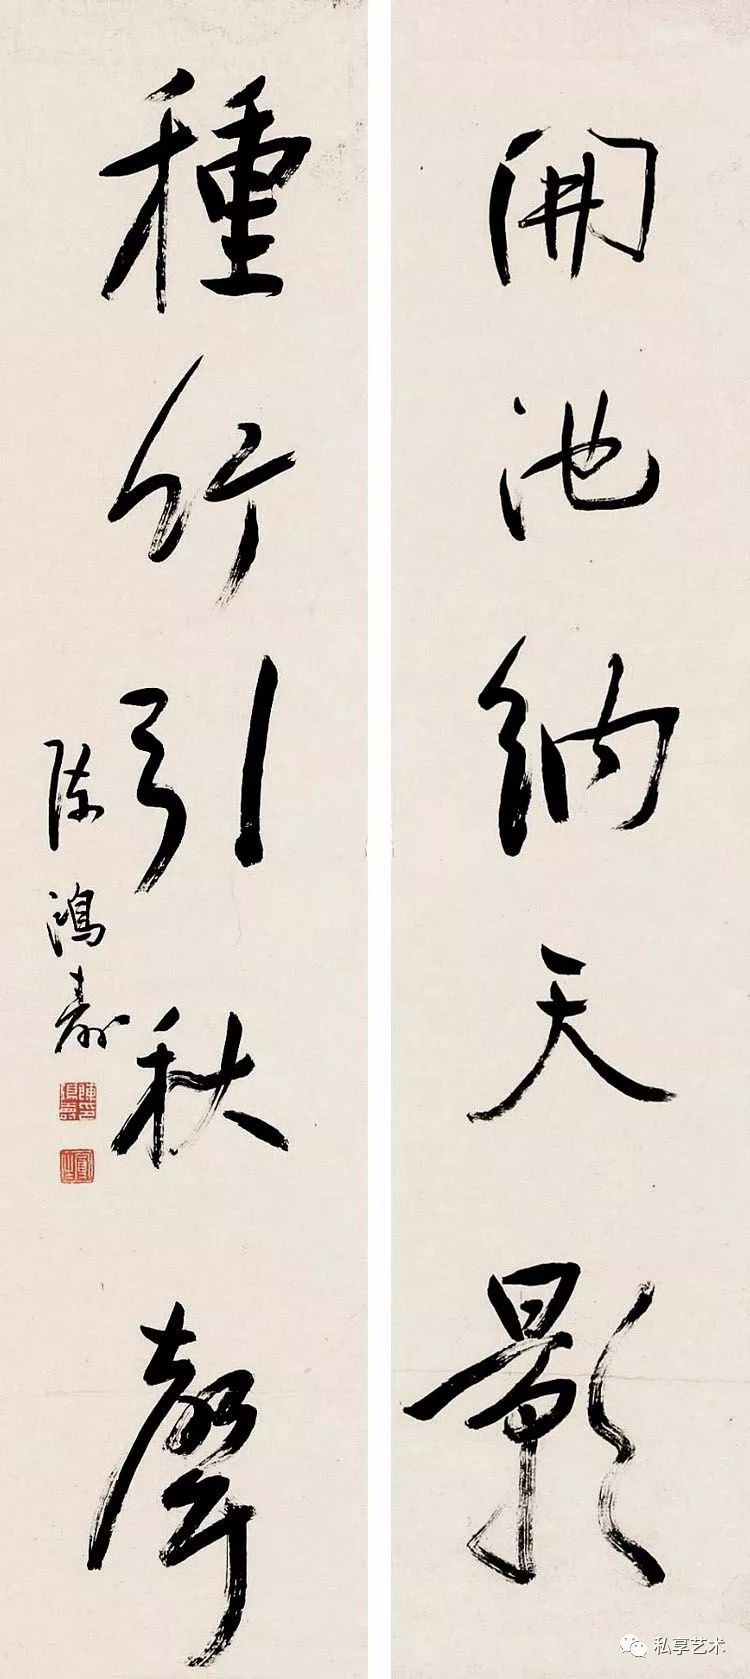 開池納天影
種竹引秋聲
陳鴻壽
私享艺术